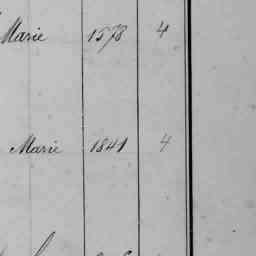 Marie 1578 4
Marie 1841 4